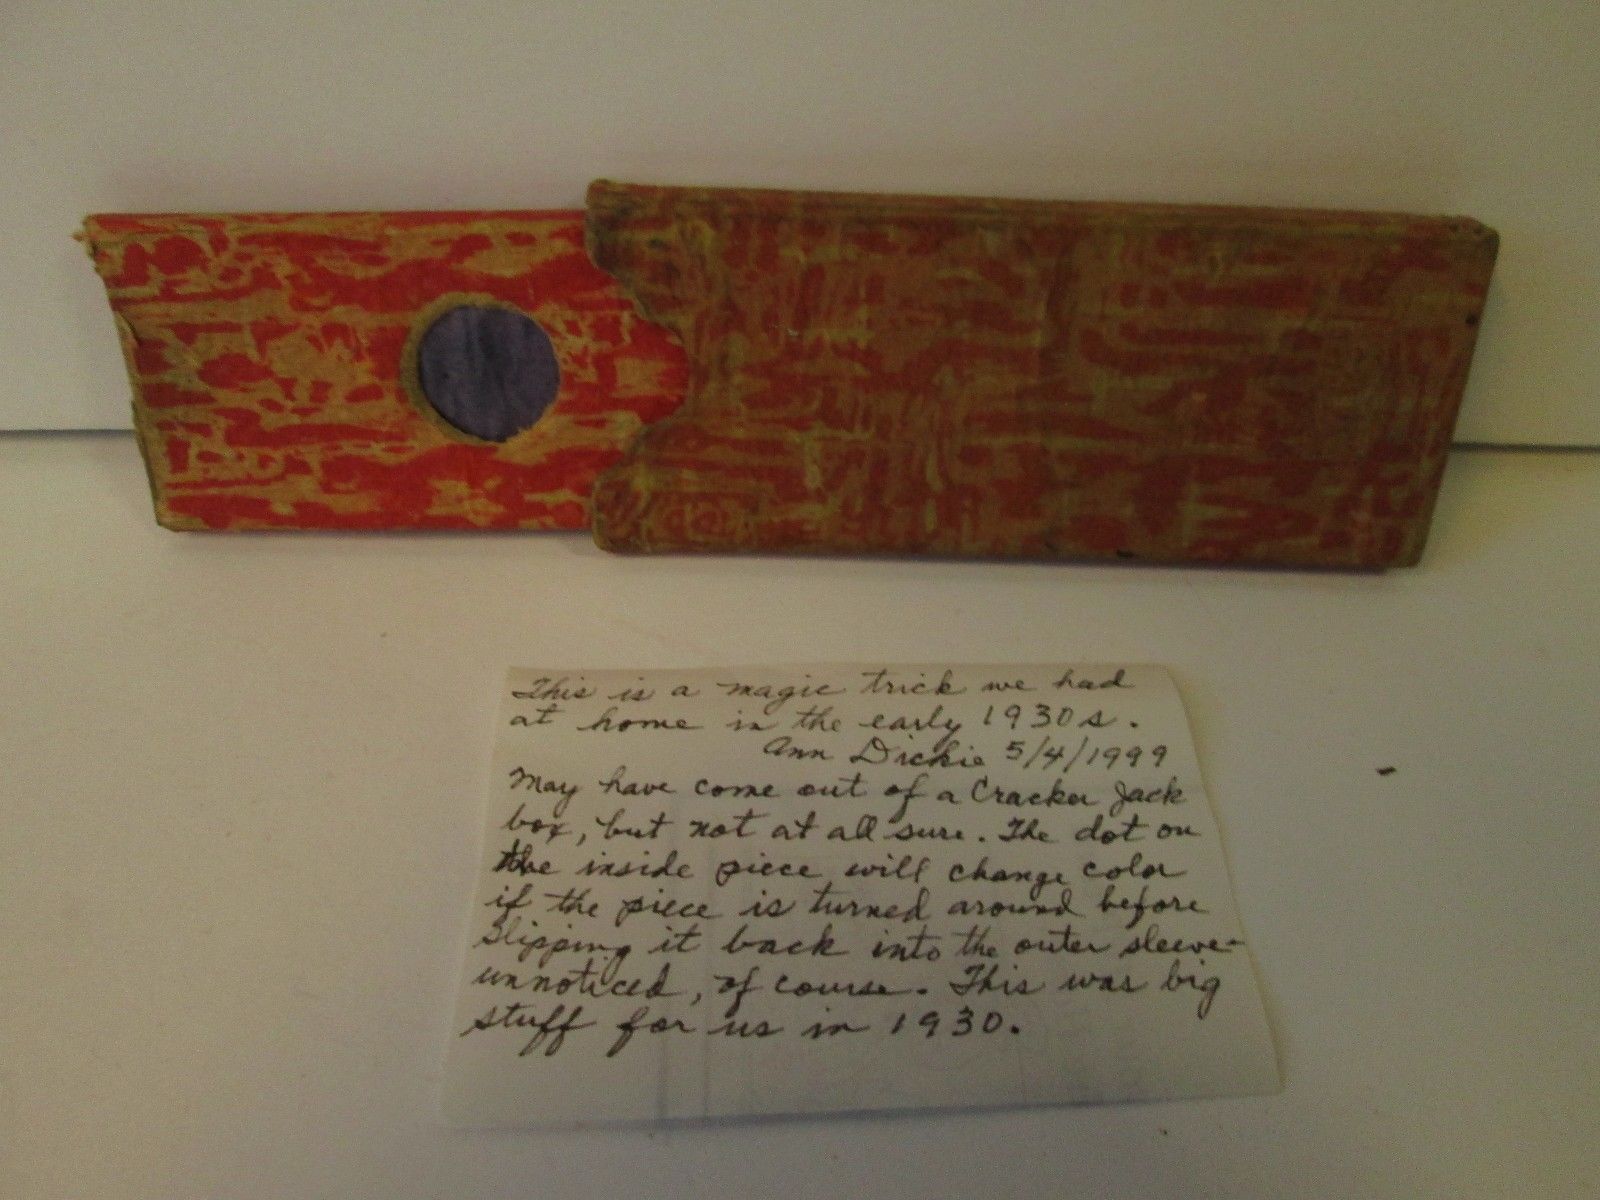 This is a magic trick we had
at home in the early 1930s.
Ann Dickie 5/4/1999
May have come out of a Cracker Jack
box, but not at all sure. The dot on
the inside piece will change color
if the piece is turned around before
slipping it back into the outer sleeve-
unnoticed, of course. This was big
stuff for us in 1930.